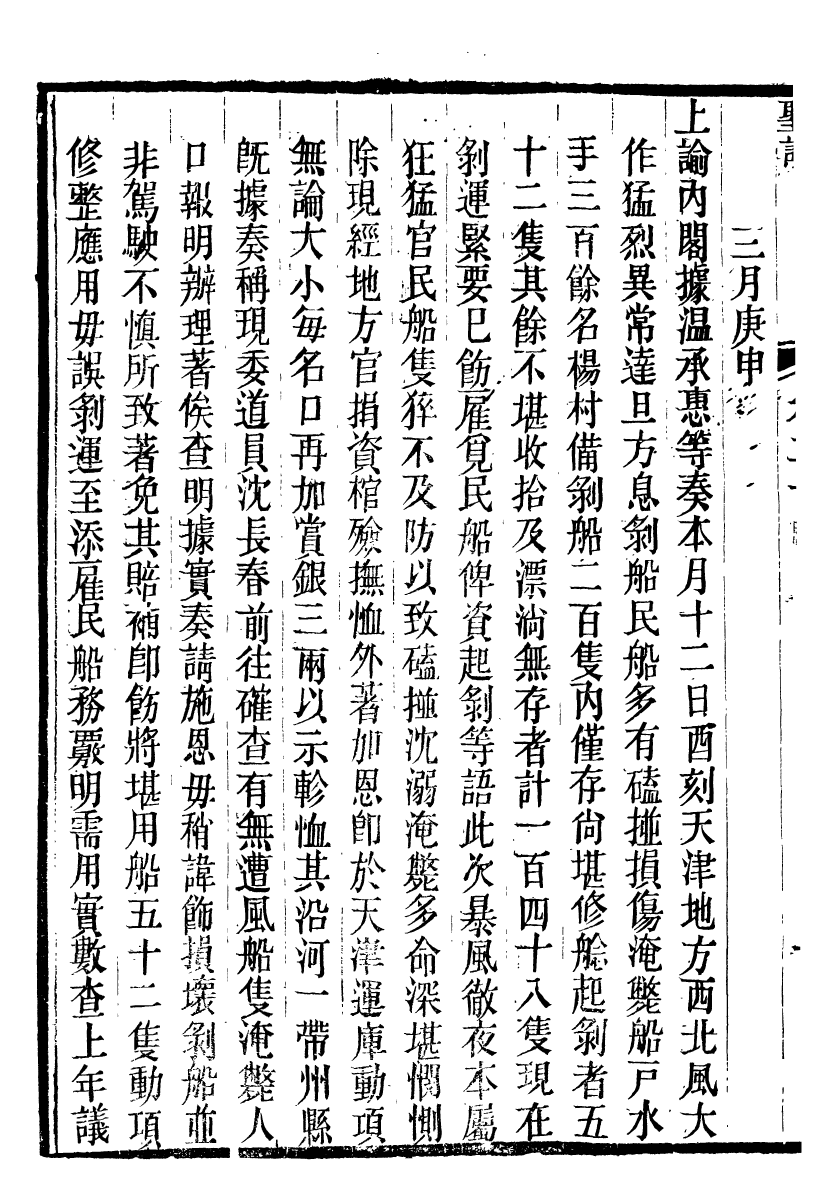 三月庚申
上諭內閣據温承惠等奏本月十二日酉刻天津地方西北風大
作猛烈異常達旦方息剝船民船多有磕撞損傷淹斃船戸水
手三百餘名楊村備剝船二百隻內僅存尙堪修艌起剝者五
十二隻其餘不堪收拾及漂淌無存者計一百四十八隻現在
剝運緊要已飭雇覓民船俾資起剝等語此次暴風徹夜本屬
狂猛官民船隻猝不及防以致磕撞沈溺淹斃多命深堪憫惻
除現經地方官捐資棺殮撫恤外著加恩卽於天津運庫動項
無論大小每名口再加賞銀三兩以示軫恤其沿河一帶州縣
旣據奏稱現委道員沈長春前往確查有無遭風船隻淹斃人
口報明辦理著俟查明據實奏請施恩毋稍諱飾損壞剝船並
非駕駛不慎所致著免其賠補卽飭將堪用船五十二隻動項
修整應用毋誤剝運至添雇民船務覈明需用實數查上年議